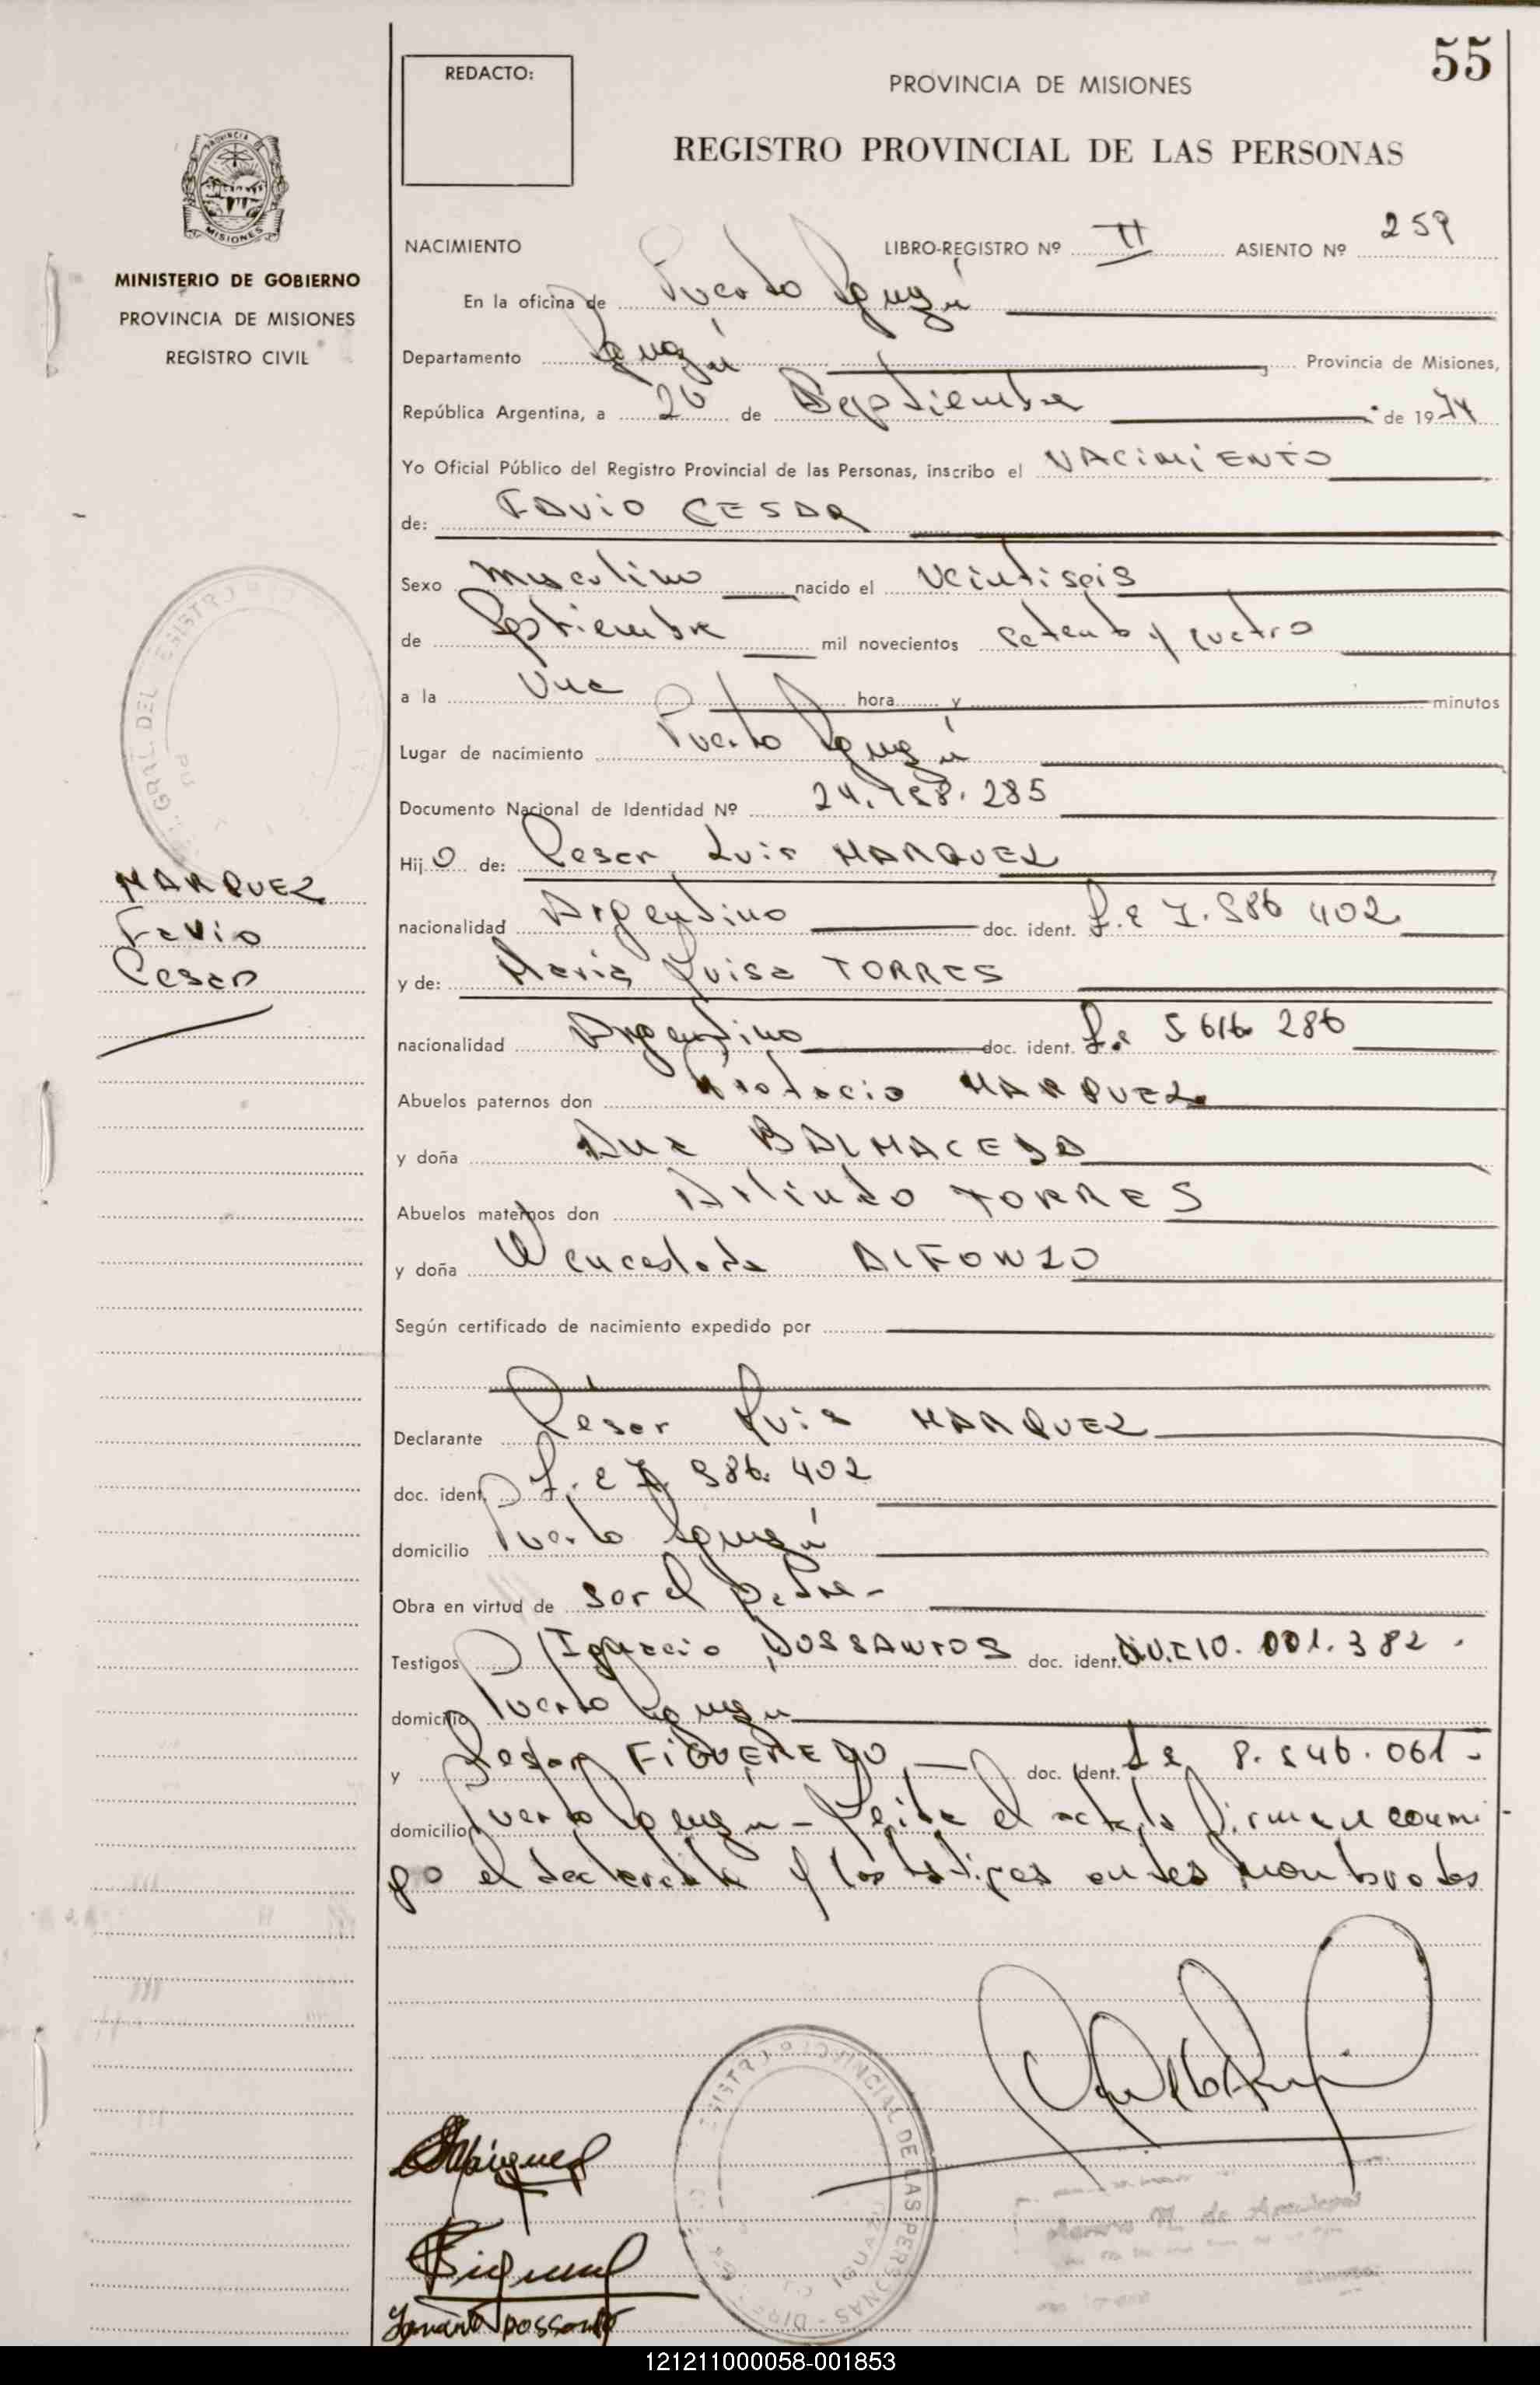 55
REDACTO:
PROVINCIA DE MISIONES
REGISTRO PROVINCIAL DE LAS PERSONAS
MISIONES
MINISTERIO DE GOBIERNO
PROVINCIA DE MISIONES
REGISTRO CIVIL
NACIMIENTO LIBRO-REGISTRO Nº II ASIENTO Nº 259
En la oficina de Puerto Iguazú
Departamento Iguazú Provincia de Misiones,
República Argentina, a 26 de Septiembre de 1974
Yo Oficial Público del Registro Provincial de las Personas, inscribo el NACIMIENTO
de: FAVIO CESAR
Sexo masculino nacido el veintiseis
de Septiembre mil novecientos setenta y cuatro
a la Una hora y minutos
Lugar de nacimiento Puerto Iguazú
Documento Nacional de Identidad Nº 285
Hijo de: Cesar Luis MARQUEZ
MARQUEZ
Favio
Cesar
nacionalidad Argentino doc. ident. L.E 402
y de: Maria Luisa TORRES
nacionalidad Argentino doc. ident. 286
Abuelos paternos don Protacio MARQUEZ
y doña Ana BALMACEDA
Abuelos maternos don Arlindo TORRES
y doña Wenceslada ALFONZO
Según certificado de nacimiento expedido por
Declarante Cesar Luis MARQUEZ
doc. ident. L.E 402
domicilio Puerto Iguazú
Obra en virtud de ser el padre -
Testigos Ignacio DOSSANTOS doc. ident. 10.001.382.
domicilio Puerto Iguazu
y Cesar FIGUEREDO doc. ident. 061-
domicilio Puerto Iguazu - Leida el acta, la firman conmi-
go el declarante y los testigos antes nombrados
REGISTRO PROVINCIAL DE LAS PERSONAS - IGUAZU
121211000058-001853